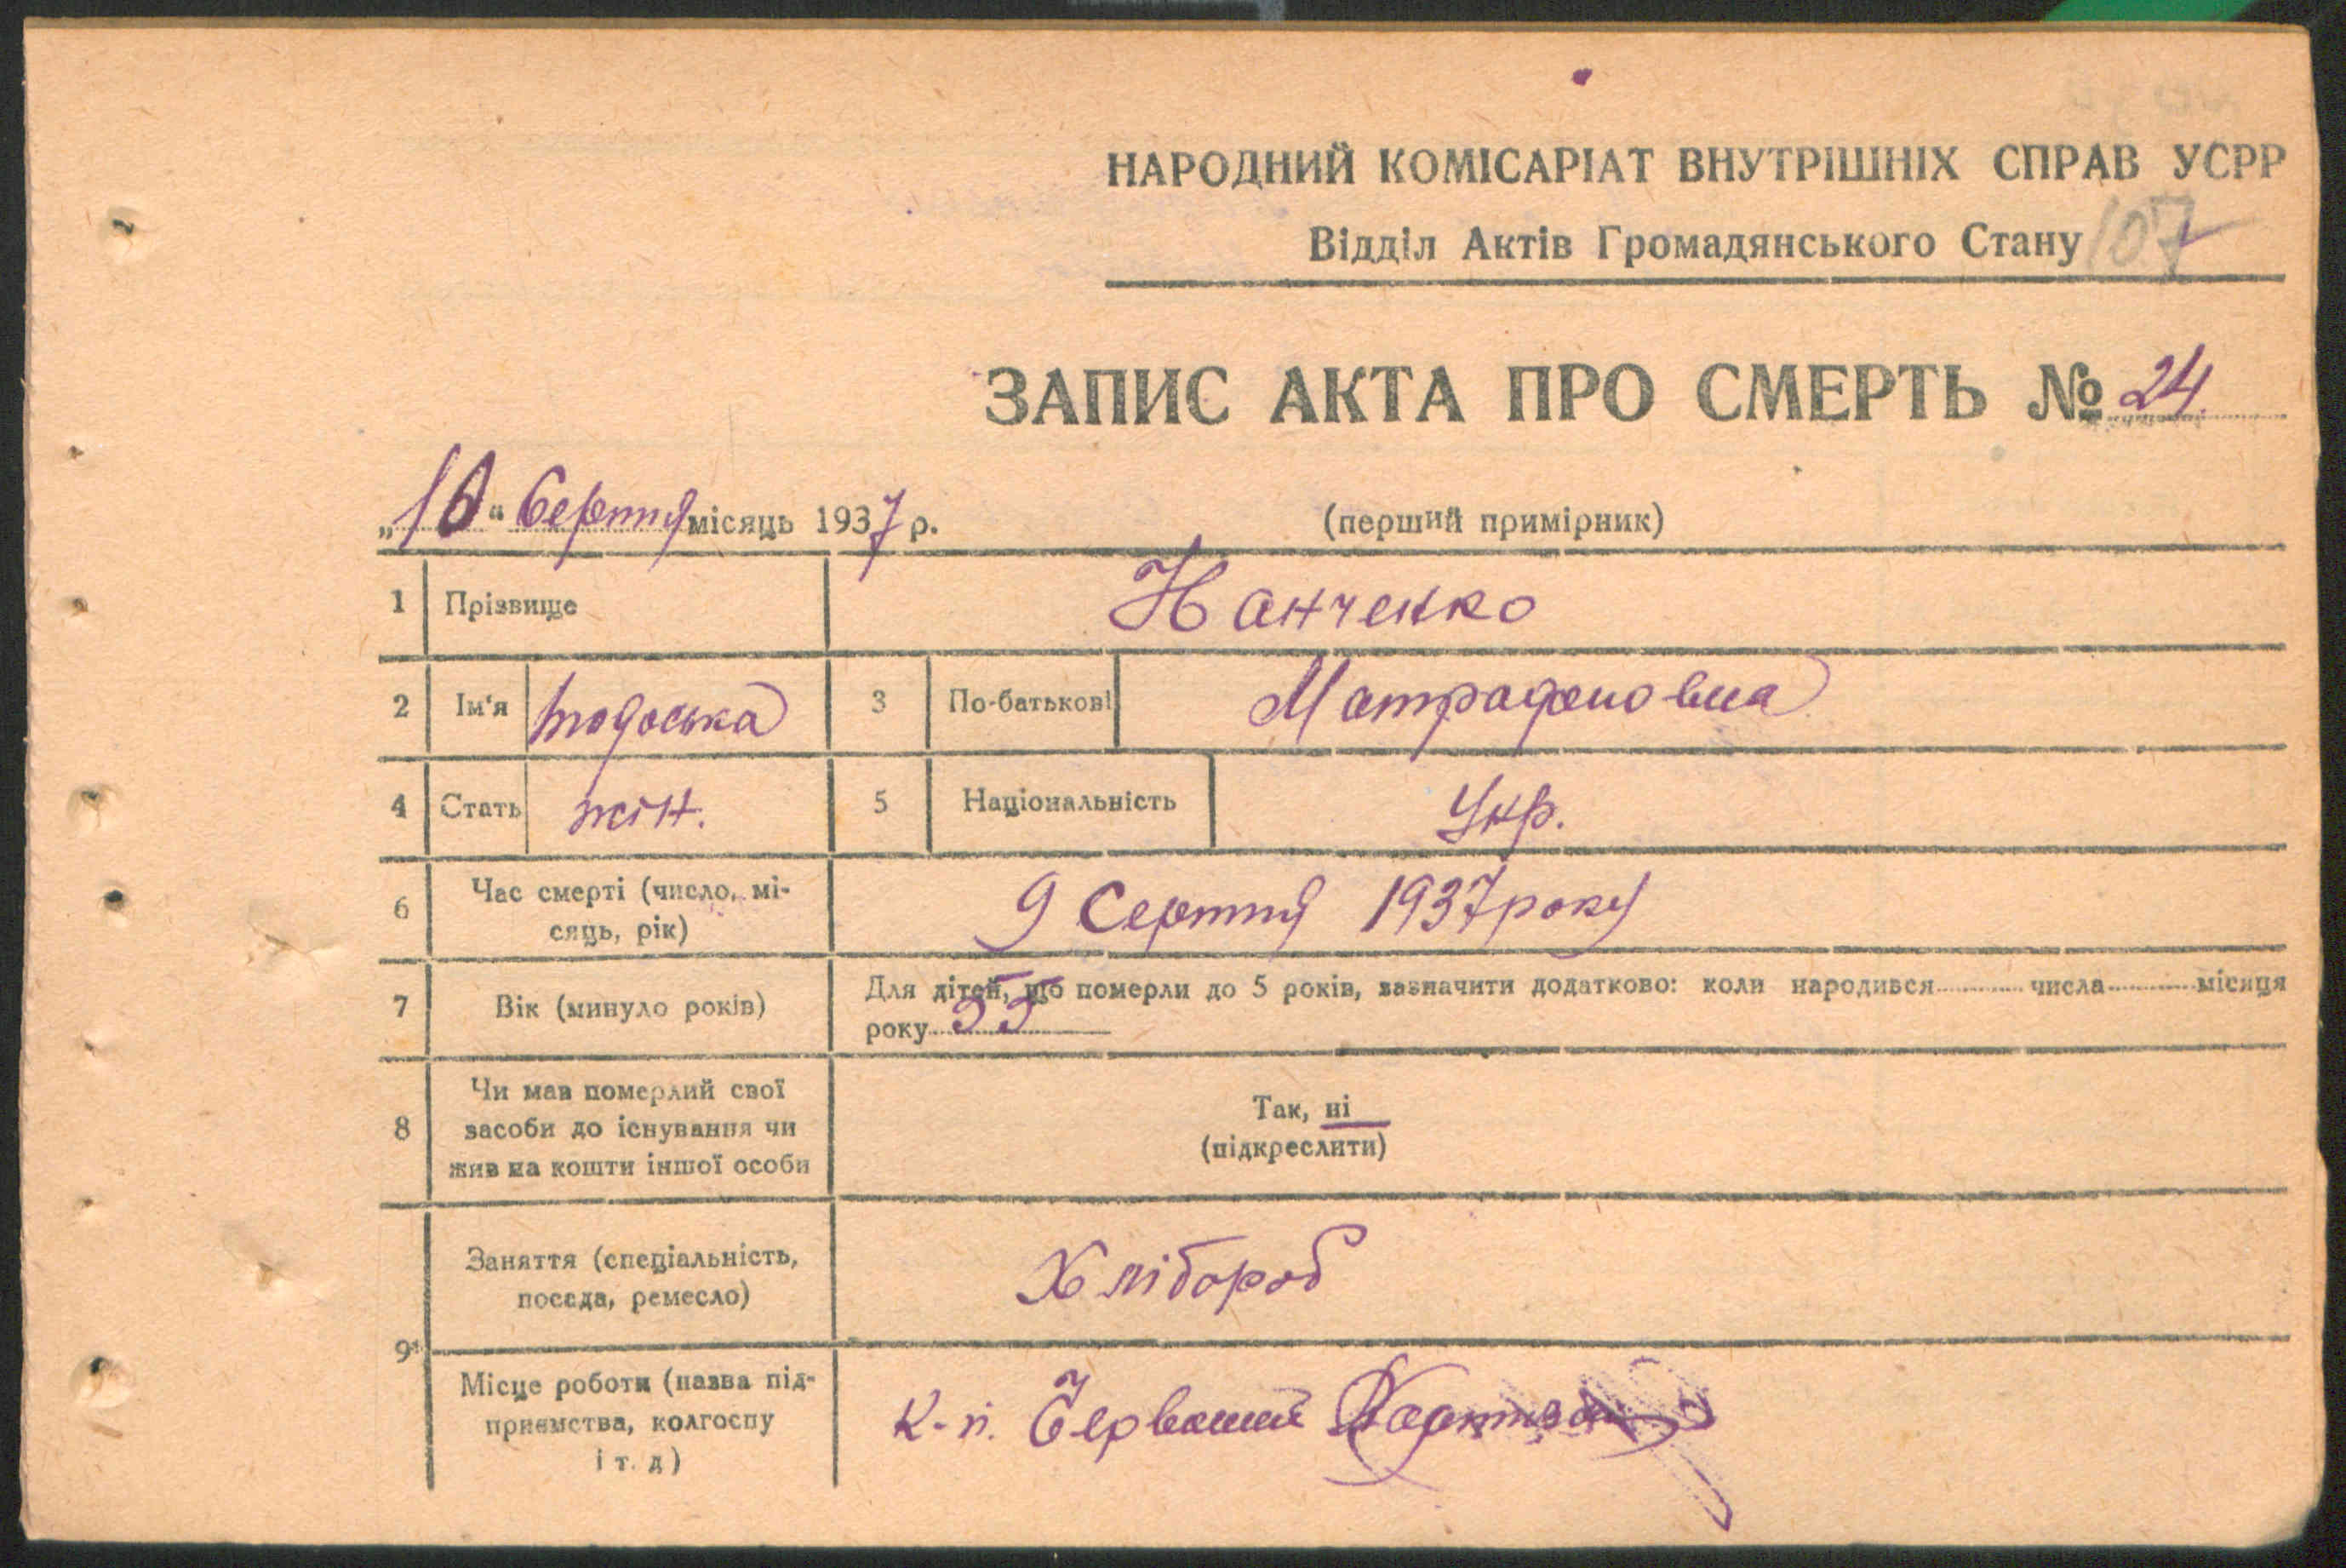 НАРОДНИЙ КОМІСАРІАТ ВНУТРІШНІХ СПРАВ УСРР
Відділ Актів Громадянського Стану 107
ЗАПИС АКТА ПРО СМЕРТЬ № 24.
„10“ Серпня місяць 1937 р. (перший примірник)
1 Прізвище Нанченко
2 Ім'я тодоська 3 По-батькові
4 Стать жін. 5 Національність Укр.
6 Час смерті (число, мі-
сяць, рік) 9 Серпня 1937 року
7 Вік (минуло років) Для дітей, що померли до 5 років, зазначити додатково: коли народився числа місяця
року 55
8 Чи мав померлий свої
засоби до існування чи
жив на кошти іншої особи
Так, ні
(підкреслити)
9 Заняття (спеціальність,
посада, ремесло) Хлібороб
Місце роботи (назва під-
приємства, колгоспу
і т. д) К-п. Червоний Партизан